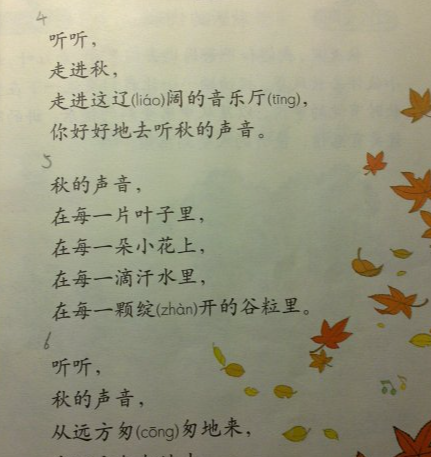 4
听听，
走进秋，
走进这辽(liáo)阔的音乐厅(tīng)，
你好好地去听秋的声音。
5
秋的声音，
在每一片叶子里，
在每一朵小花上，
在每一滴汗水里，
在每一颗绽(zhàn)开的谷粒里。
6
听听，
秋的声音，
从远方匆(cōng)匆地来，